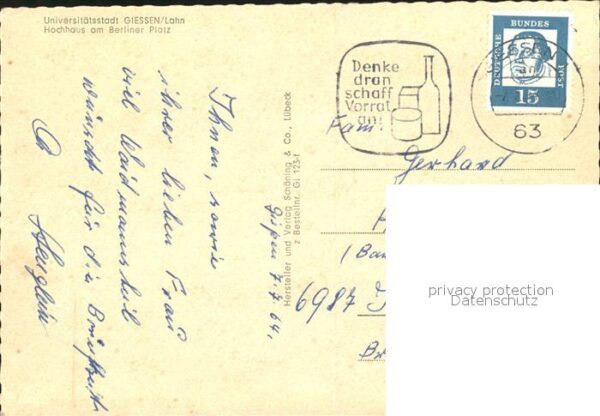 Universitätsstadt GIESSEN/Lahn
Hochhaus am Berliner Platz
Denke
dran
schaff
Vorrat
an!
DEUTSCHE
BUNDES
POST
15
63
Gießen 7.7.64.
Ihnen, sowie
ihrer lieben Frau
viel Waidmannsheil
wünscht für die
Hersteller und Verlag Schöning & Co., Lübeck
z Bestellnr. Gi 123-1
Fam.
Gerhard
6987
privacy protection
Datenschutz